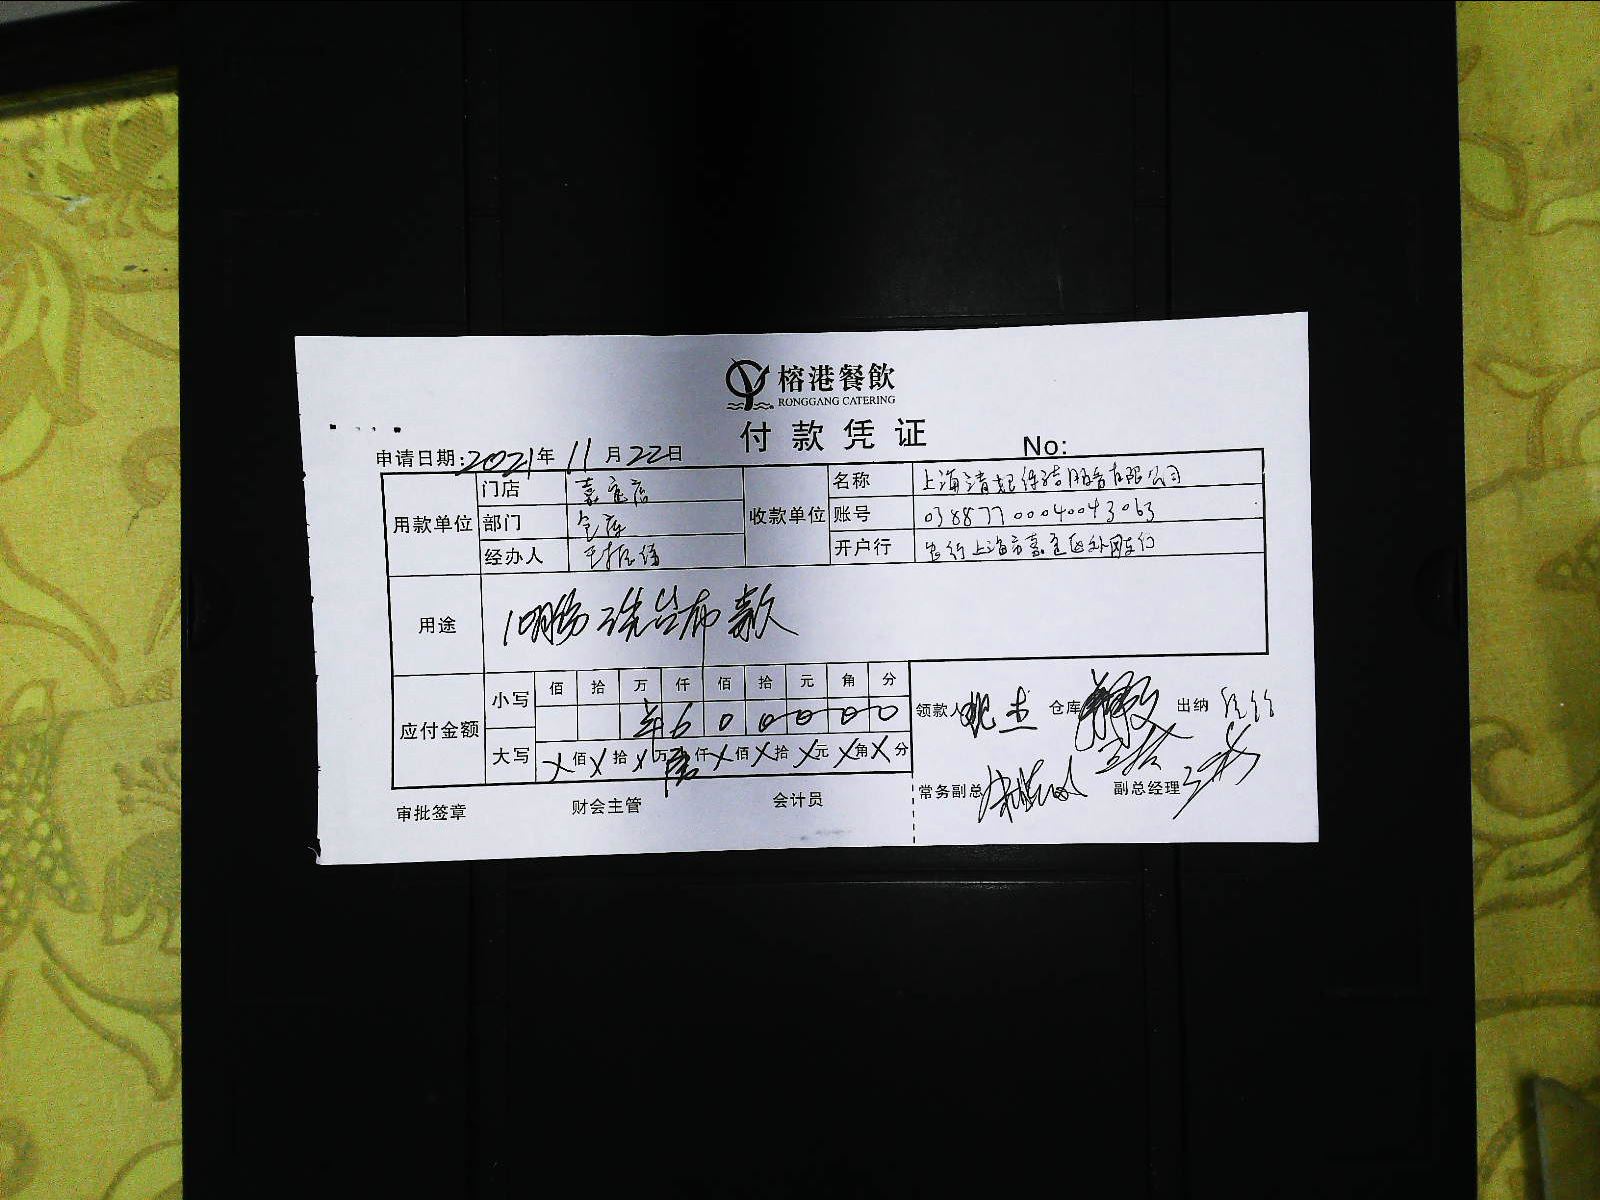 榕港餐飲
RONGGANG CATERING
付款凭证
申请日期:2021年11月22日 No:
用款单位 门店 嘉定店 收款单位 名称 上海清妃保洁服务有限公司
部门 仓库 账号 03887700040043063
经办人 开户行 农行上海市嘉定
用途 10月份洗台布款
应付金额 小写 佰 拾 万 仟 佰 拾 元 角 分
¥ 6 0 0 0 0 0
大写 X佰X拾X万陆仟X佰X拾X元X角X分
领款人 仓库 出纳
常务副总 副总经理
审批签章 财会主管 会计员